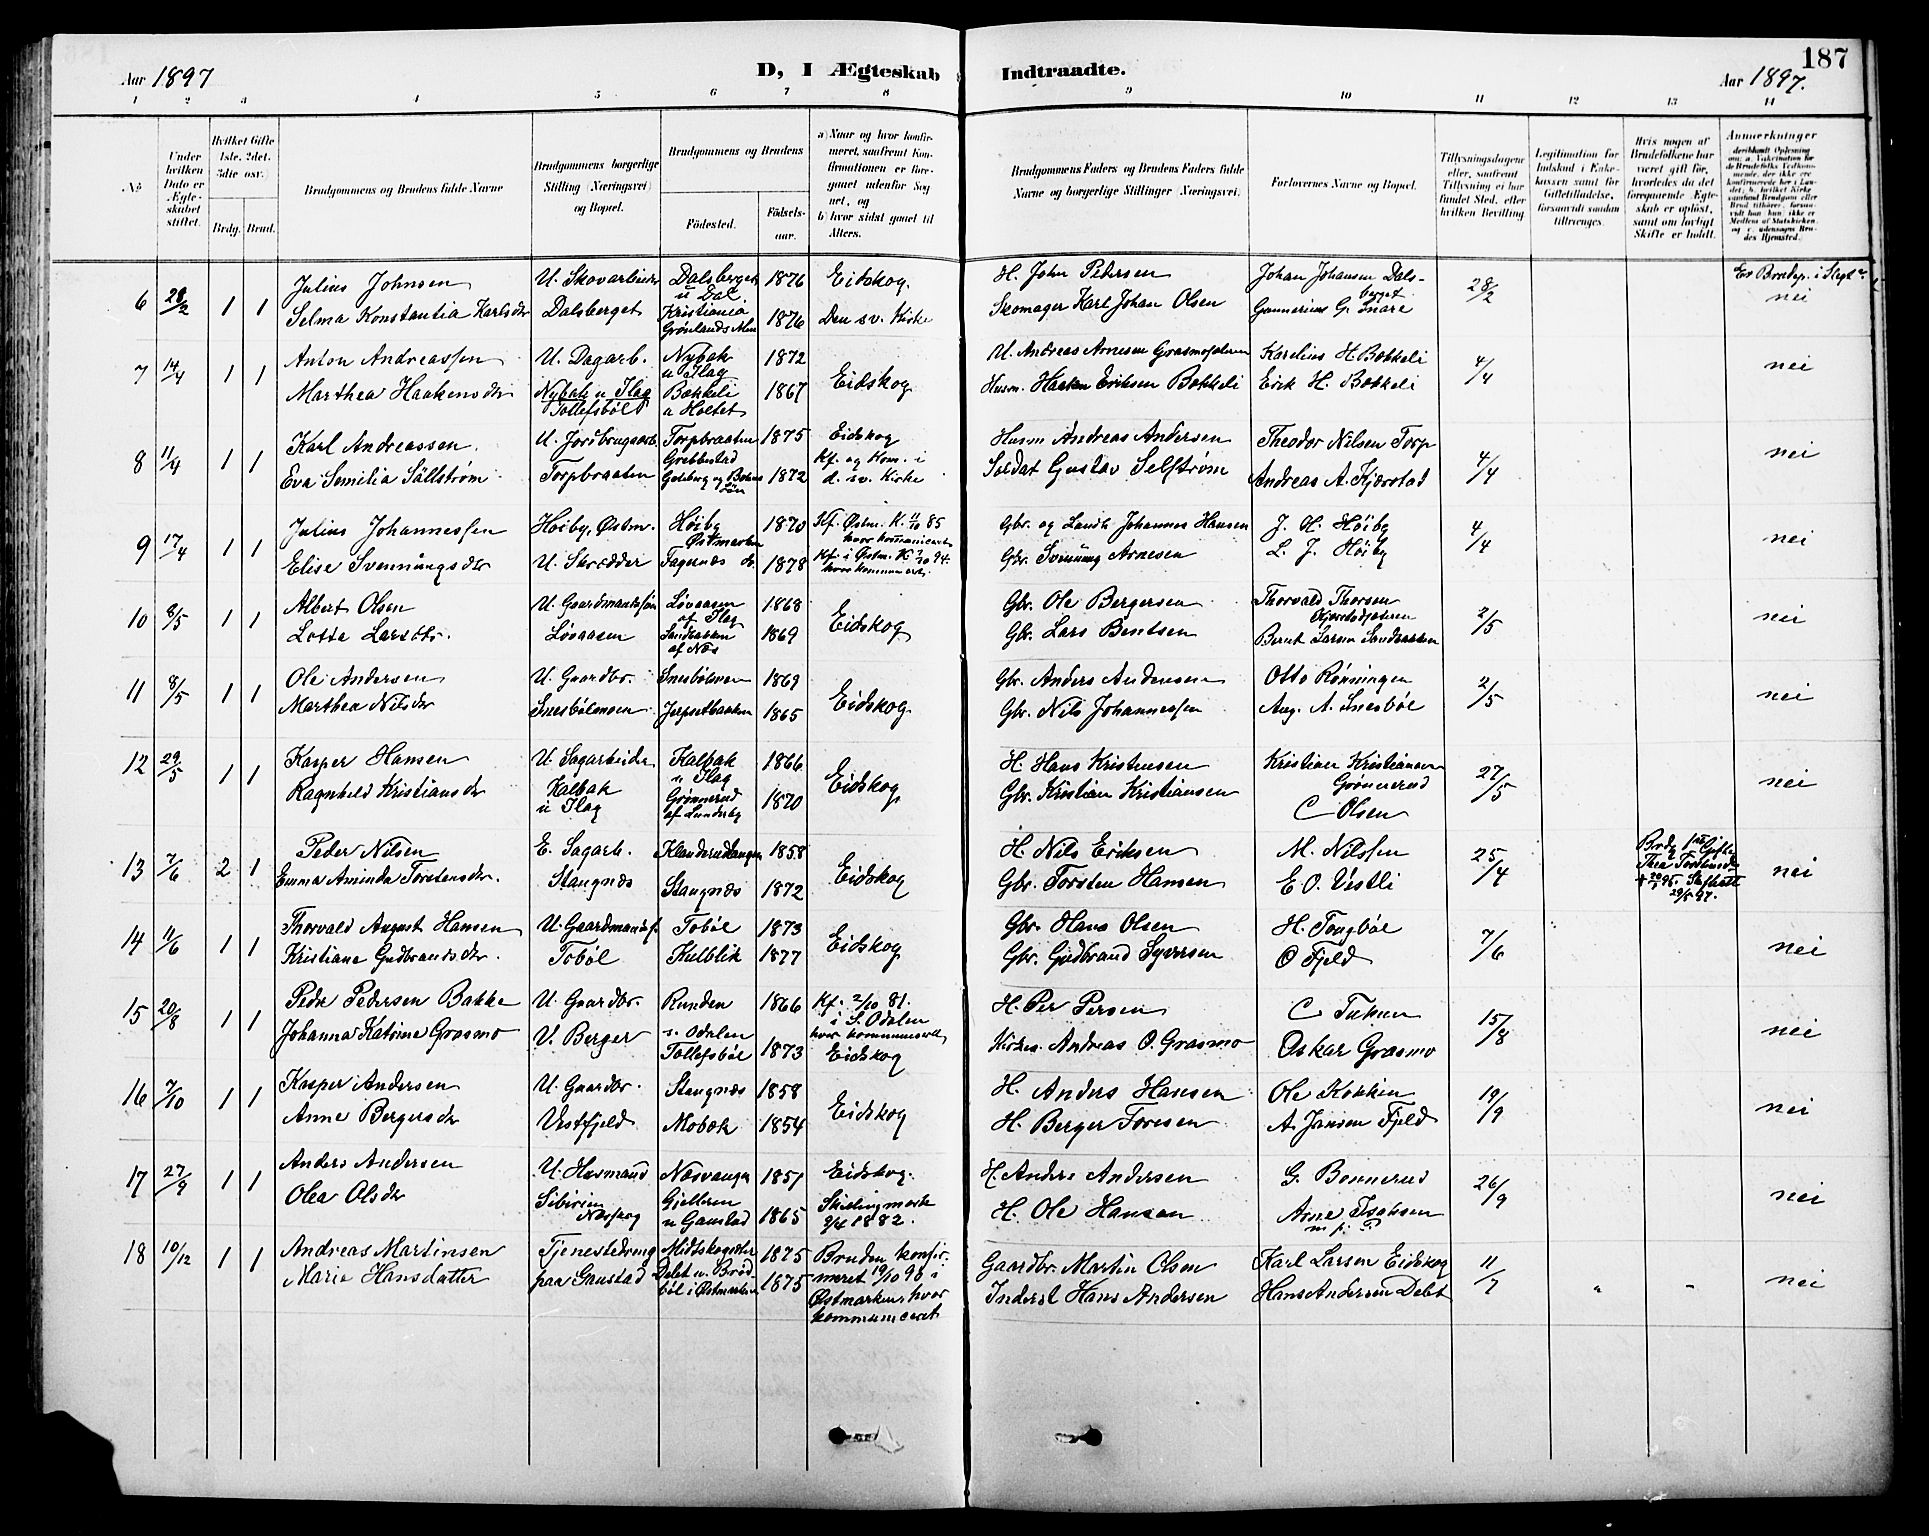 187
Aar 1897
D, I Ægteskab
Indtraadte.
Aar 1897.
1 2 3 4 5 6 7 8 9 10 11 12 13 14
No
Under hvilken Dato er Ægteskabet stiftet.
Hvilket Gifte 1ste, 2det, 3die osv.)
Brdg. Brud.
Brudgommens og Brudens fulde Navne
Brudgommens borgerlige Stilling (Næringsvei) og Bopæl.
Brudgommens og Brudens
Fødested.
Fødselsaar.
a) Naar og hvor konfirmeret, saafremt Konfirmationen er foregaaet udenfor Sognet, og
b) hvor sidst gaaet til Alters.
Brudgommens Faders og Brudens Faders fulde Navne og borgerlige Stillinger (Næringsvei).
Forlovernes Navne og Bopæl.
Tillysningsdagene eller, saafremt Tillysning ei har fundet Sted, efter hvilken Bevilling
Legitimation for Indskud i Enkekassen samt for Giftetilladelse, forsaavidt saadan tiltrænges.
Hvis nogen af Brudefolkene har været gift før, hvorledes da det foregaaende Ægteskab er opløst, samt om lovligt Skifte er holdt.
Anmerkninger
6 28/2 1 1 Julius Johnsen U. Skovarbeider Dalsberget u Dal 1876 Eidskog H. John Pedersen Johan Johansen Dalsberget 28/2 nei
Selma Konstantia Karlsdtr Dalsberget Kristiania Grønlands Mn 1876 Den sv. Kirke Skomager Karl Johan Olsen Gunnerius G. Snare
7 14/4 1 1 Anton Andreassen U. Dagarb. Nybak u Ilag 1872 Eidskog U. Andreas Arnesen Grasmosæteren Karelius H. Bækkeli 4/4 nei
Marthea Haakensdtr Nybak u Ilag Tollefsbøl Bækkeli u Holtet 1867 Husm. Haaken Eriksen Bækkeli Erik H. Bækkeli
8 11/4 1 1 Karl Andreassen U. Jordbrugsarb. Torpbraaten 1875 Eidskog Husm Andreas Andersen Theodor Nilsen Torp 4/4 nei
Eva Semilia Sällström Torpbraaten Grebbestad Goteborg og Bohus Län 1872 Kf. og Kom. i d. sv. Kirke Soldat Gustav Selfstrøm Andreas A. Kjærstad
9 17/4 1 1 Julius Johannessen Høiby, Østm. Høiby Østmarken 1870 Kf. Østm. K. 11/10 85 hvor kommuniceret Gbr. og Landh. Johannes Hansen J. H. Høiby 4/4 nei
Elise Svennungsdtr U. Skrædder Tagernæs 1878 Kf. i Østm. K 7/10 94. hvor kommunicert. Gbr. Svennung Arnesen L. J. Høiby
10 8/5 1 1 Albert Olsen U. Gaardmandssøn Løvaasen af Ilag 1868 Eidskog Gbr. Ole Bergersen Thorvald Thorsen 2/5 nei
Lotte Larsdtr. Løvaasen Sandbakken af Næs 1869 Gbr. Lars Bentsen Bernt Larsen Sandbakken
11 8/5 1 1 Ole Andersen U. Gaardbr. Snesbølmoen 1869 Eidskog Gbr. Anders Andersen Otto Rønningen 2/5 nei
Marthea Nilsdtr Snesbølmoen Jerpsetbakken 1865 Gbr. Nils Johannessen Aug. A. Snesbøl
12 29/5 1 1 Kasper Hansen U. Sagarbeider Kalbak u Ilag 1866 Eidskog H. Hans Kristensen Kristian Kristiansen Grønnerud 27/5 nei
Ragnhild Kristiansdtr Kalbak u Ilag Grønnerud af Lunderby 1870 Gbr. Kristian Kristiansen C Olsen
13 7/6 2 1 Peder Nilsen E. Sagarb. Klanderudhaugen 1858 Eidskog H. Nils Eriksen M. Nilssen 25/4 Brdg 1ste Gifte Thea Torstensdtr + 20/1 95. Skifteatt 29/5 97. nei
Emma Aminda Torstensdtr. Stangnæs Stangnæs 1872 Gbr. Torsten Hansen E. O. Vestli
14 11/6 1 1 Thorvald August Hansen U. Gaardmandss. Tobøl 1873 Eidskog Gbr. Hans Olsen H. Tongbøl 7/6 nei
Kristiane Gudbrandsdtr. Tobøl Kulblik 1877 Gbr. Gudbrand Syversen O Fjeld
15 20/8 1 1 Peder Pedersen Bakke U. Gaardbr. Runden s. Odalen 1866 Kf. 2/10 81. i S. Odalen hvor kommuniceret H. Per Persen C Tuhun 15/8 nei
Johanna Katrine Grasmo V. Berger Tollefsbøl 1873 Eidskog Kirkes. Andreas O. Grasmo Oskar Grasmo
16 7/10 1 1 Kasper Andersen U. Gaardbr. Stangnæs 1858 Eidskog H. Anders Hansen Ole Kokken 19/9 nei
Anne Bergersdtr Vestfjeld Mobæk 1854 H. Berger Toresen A. Jansen Fjeld
17 27/9 1 1 Anders Andersen U. Husmand Næsvangen 1851 Eidskog. H Anders Andersen G. Bonnerud 26/9 nei
Olea Olsdtr Sibirien Næsskog Gjelleren u Gaustad 1865 Skillingmark 9/4 1882. H. Ole Hansen Arne Isaksen
18 10/12 1 1 Andreas Martinsen Tjenestedreng Midtskogsæter 1875 Bruden konfirmeret 19/10 90 i Gaardbr. Martin Olsen Karl Larsen Eidskog 11/7 " " nei
Marie Hansdatter paa Gaustad Debet u. Brødbøl i Østmarken 1875 Østmarken, hvor kommuniceret Inderst Hans Andersen Hans Andersen Debet